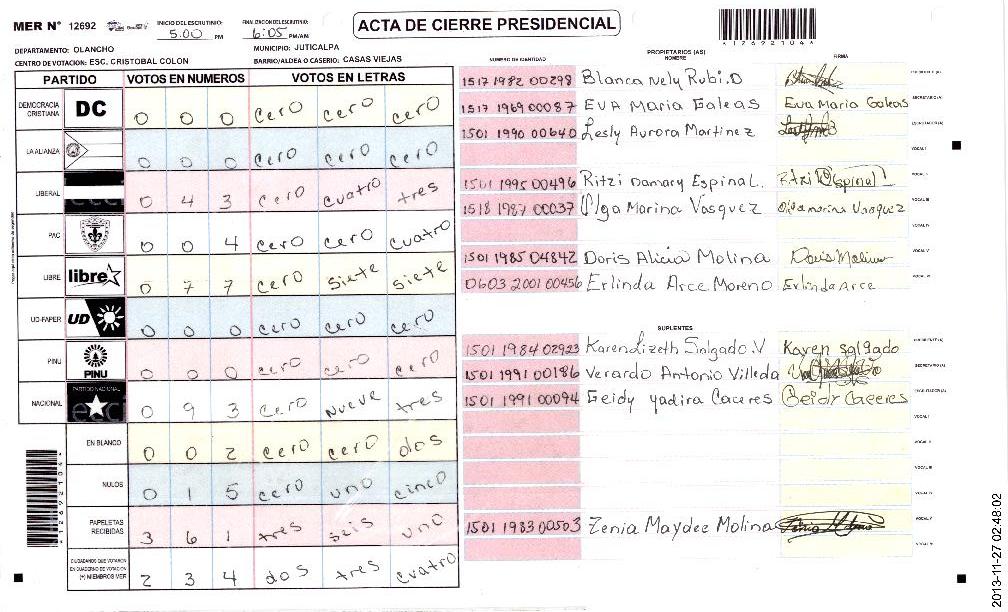 MER N° 12692
INICIO DEL ESCRUTINIO: 5:00 PM
FINALIZACION DEL ESCRUTINIO: 6:05 PM/AM
ACTA DE CIERRE PRESIDENCIAL
*12692104*
DEPARTAMENTO: OLANCHO
MUNICIPIO: JUTICALPA
CENTRO DE VOTACION: ESC. CRISTOBAL COLON
BARRIO/ALDEA O CASERIO: CASAS VIEJAS
PARTIDO VOTOS EN NUMEROS VOTOS EN LETRAS
DEMOCRACIA CRISTIANA DC 0 0 0 cero cero cero
LA ALIANZA 0 0 0 cero cero cero
LIBERAL 0 4 3 cero cuatro tres
PAC 0 0 4 cero cero cuatro
LIBRE libre 0 7 7 cero siete siete
UD-FAPER UD 0 0 0 cero cero cero
PINU PINU 0 0 0 cero cero cero
NACIONAL PARTIDO NACIONAL 0 9 3 cero nueve tres
EN BLANCO 0 0 2 cero cero dos
NULOS 0 1 5 cero uno cinco
PAPELETAS RECIBIDAS 3 6 1 tres seis uno
CIUDADANOS QUE VOTARON EN CUADERNO DE VOTACION (+) MIEMBROS MER 2 3 4 dos tres cuatro
NUMERO DE IDENTIDAD PROPIETARIOS (AS) NOMBRE FIRMA
1517 1982 00298 Blanca Nely Rubi.O
1517 1969 00087 EVA Maria Galeas Eva Maria Galeas SECRETARIO(A)
1501 1990 00640 Lesly Aurora Martinez ESCRUTADOR(A)
VOCAL I
1501 1995 00496 Ritzi Damary Espinal. Ritzi D Espinal
1518 1987 00037 Olga Marina Vasquez Olga marina Vasquez VOCAL III
VOCAL IV
1501 1985 04842 Doris Alicia Molina Doris Molina VOCAL V
0603 2001 00456 Erlinda Arce Moreno Erlinda Arce
SUPLENTES
1501 1984 02923 Karen Lizeth Salgado.V Karen salgado
1501 1991 00186 Verardo Antonio Villeda SECRETARIO(A)
1501 1991 00094 Geidy yadira Caceres Geidy Caceres ESCRUTADOR(A)
VOCAL I
VOCAL II
VOCAL III
VOCAL IV
1501 1983 00503 Zenia Maydee Molina VOCAL V
2013-11-27 02:48:02